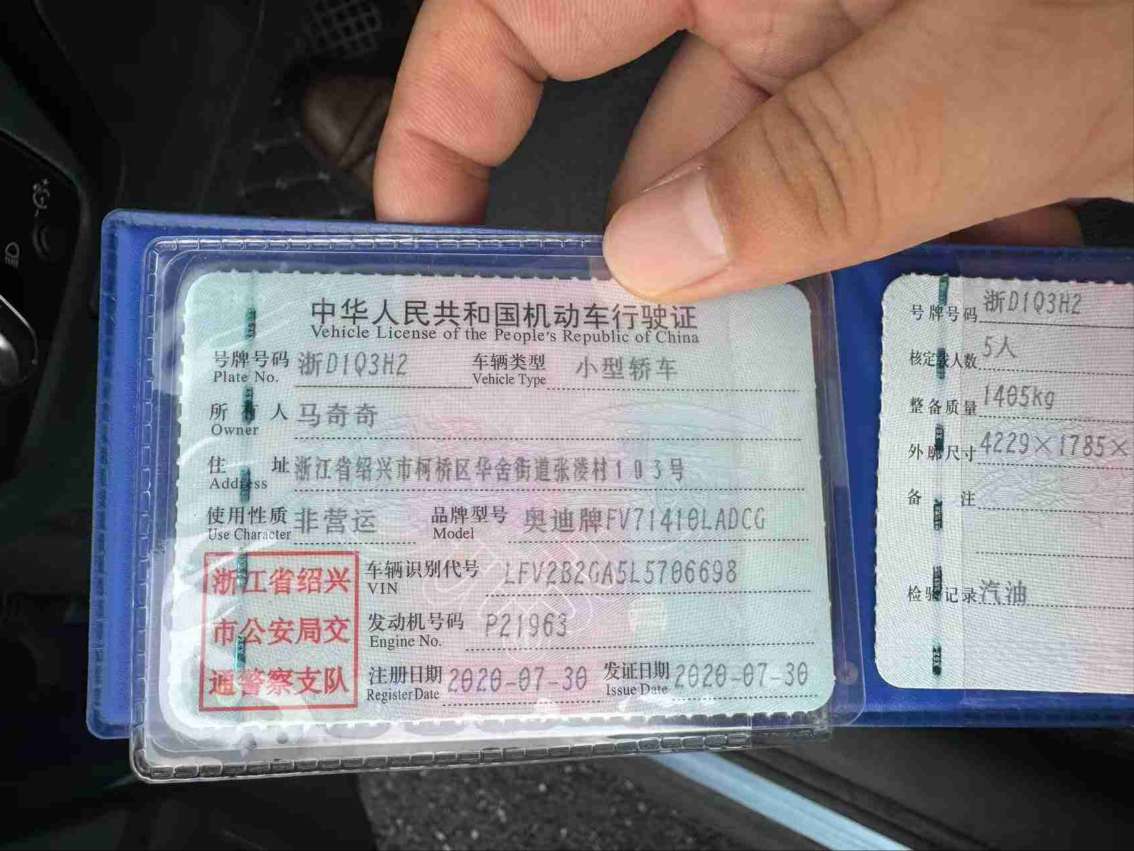 中华人民共和国机动车行驶证
Vehicle License of the People's Republic of China
号牌号码 浙D1Q3H2 车辆类型 小型轿车
Plate No. Vehicle Type
所有人 马奇奇
Owner
住址 浙江省绍兴市柯桥区华舍街道张溇村103号
Address
使用性质 非营运 品牌型号 奥迪牌FV71410LADCG
Use Character Model
浙江省绍兴
市公安局交
通警察支队
车辆识别代号 LFV2B2GA5L5706698
VIN
发动机号码 P21963
Engine No.
注册日期 2020-07-30 发证日期 2020-07-30
Register Date Issue Date
号牌号码 浙D1Q3H2
核定载人数 5人
整备质量 1405kg
外廓尺寸 4229×1785×
备注
检验记录 汽油